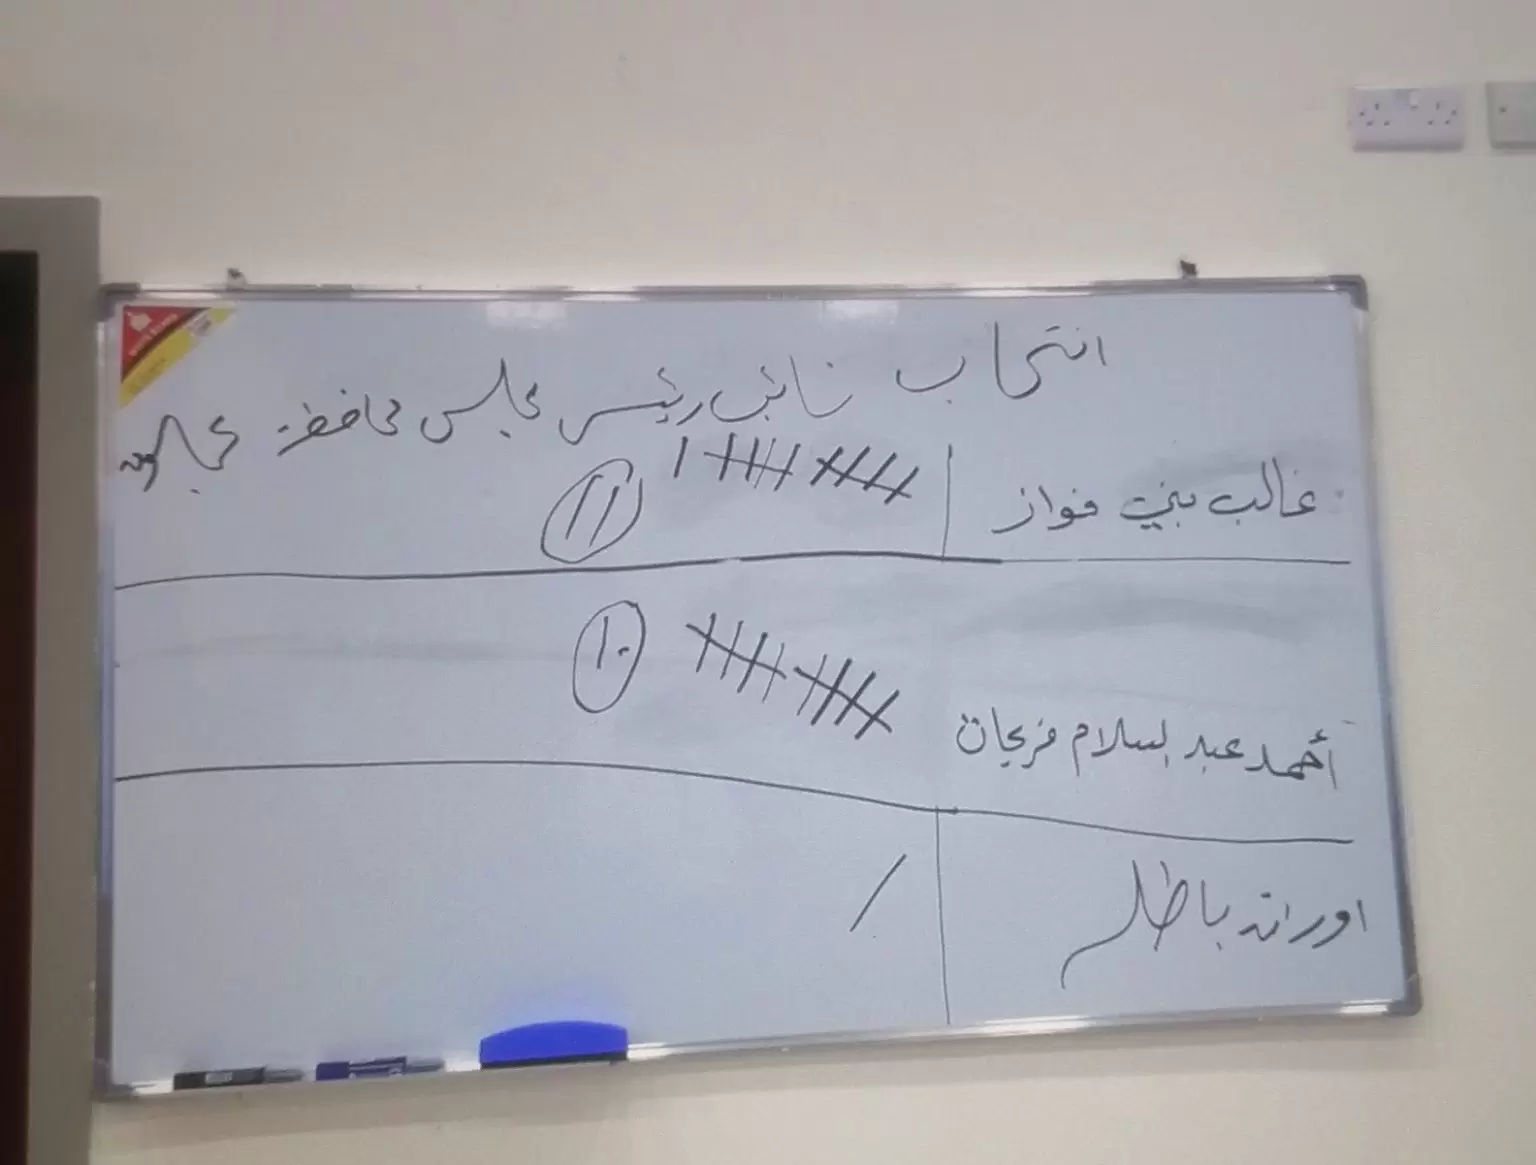 انتخاب نائب رئيس مجلس محافظة عجلون
غالب بني فواز
١١
أحمد عبد السلام فريحات
١٠
اوراق باطله